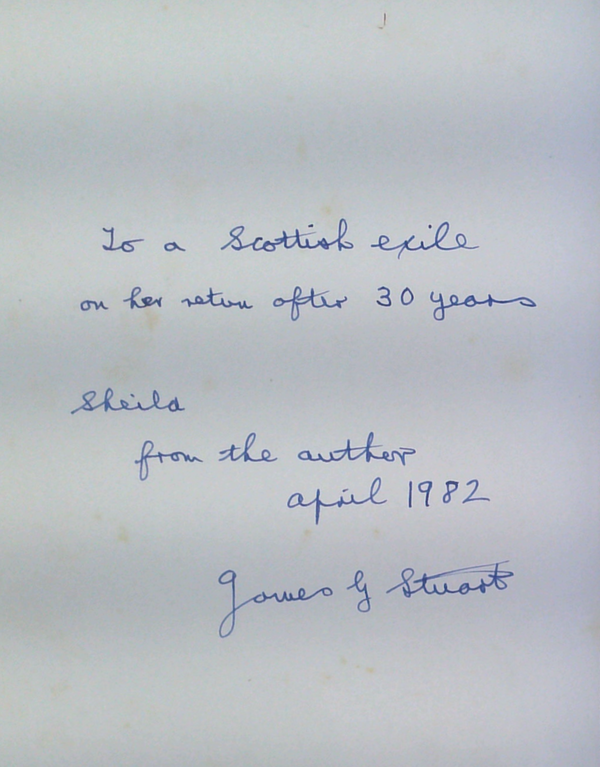 To a Scottish exile
on her return after 30 years
Sheila
from the author
april 1982
James G Stuart